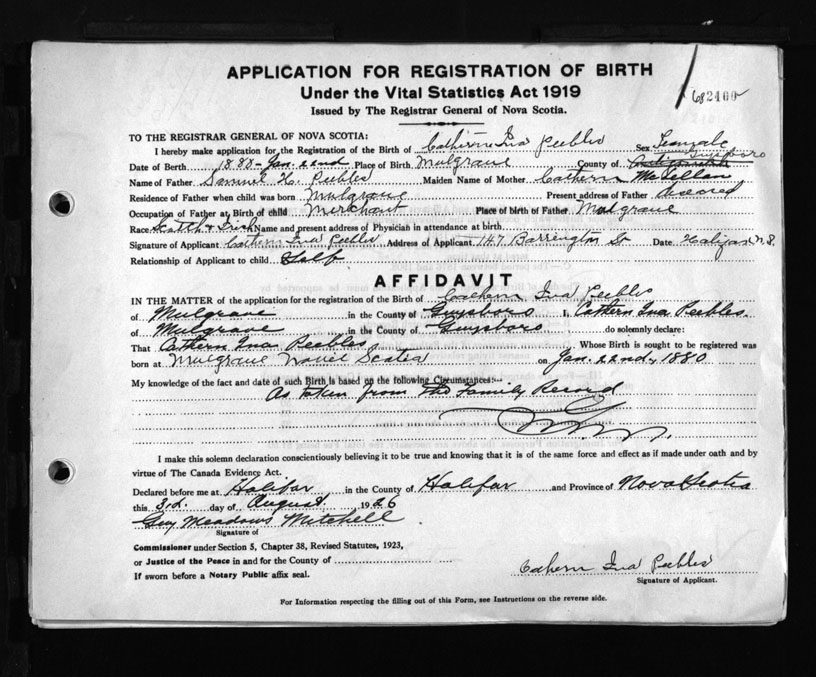 APPLICATION FOR REGISTRATION OF BIRTH
Under the Vital Statistics Act 1919
Issued by The Registrar General of Nova Scotia.
682400
TO THE REGISTRAR GENERAL OF NOVA SCOTIA:
I hereby make application for the Registration of the Birth of Catherine Ina Peebles Sex Female
Date of Birth 1880 - Jan. 22nd Place of Birth Mulgrave County of Antigonish Guysboro
Name of Father Samuel H. Peebles Maiden Name of Mother Cathern McLellan
Residence of Father when child was born Mulgrave Present address of Father deceased
Occupation of Father at Birth of child Merchant Place of birth of Father Mulgrave
Race Scotch & Irish Name and present address of Physician in attendance at birth
Signature of Applicant Cathern Ina Peebles Address of Applicant 147 Barrington St Date Halifax N.S.
Relationship of Applicant to child Self
AFFIDAVIT
IN THE MATTER of the application for the registration of the Birth of Cathern Ina Peebles
of Mulgrave in the County of Guysboro I, Cathern Ina Peebles.
of Mulgrave in the County of Guysboro do solemnly declare:
That Cathern Ina Peebles, Whose Birth is sought to be registered was
born at Mulgrave Scotia on Jan. 22nd, 1880
My knowledge of the fact and date of such Birth is based on the following Circumstances:—
As taken from the Family Record
I make this solemn declaration conscientiously believing it to be true and knowing that it is of the same force and effect as if made under oath and by
virtue of The Canada Evidence Act.
Declared before me at Halifax in the County of Halifax and Province of Nova Scotia
this 3rd. day of August 1926
Guy Meadows Mitchell
Signature of
Commissioner under Section 5, Chapter 38, Revised Statutes, 1923,
or Justice of the Peace in and for the County of
If sworn before a Notary Public affix seal.
Cathern Ina Peebles
Signature of Applicant.
For Information respecting the filling out of this Form, see Instructions on the reverse side.